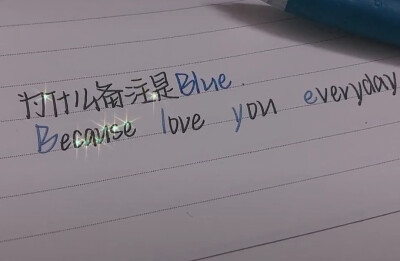 为什么备注是Blue.
Because love you everyday